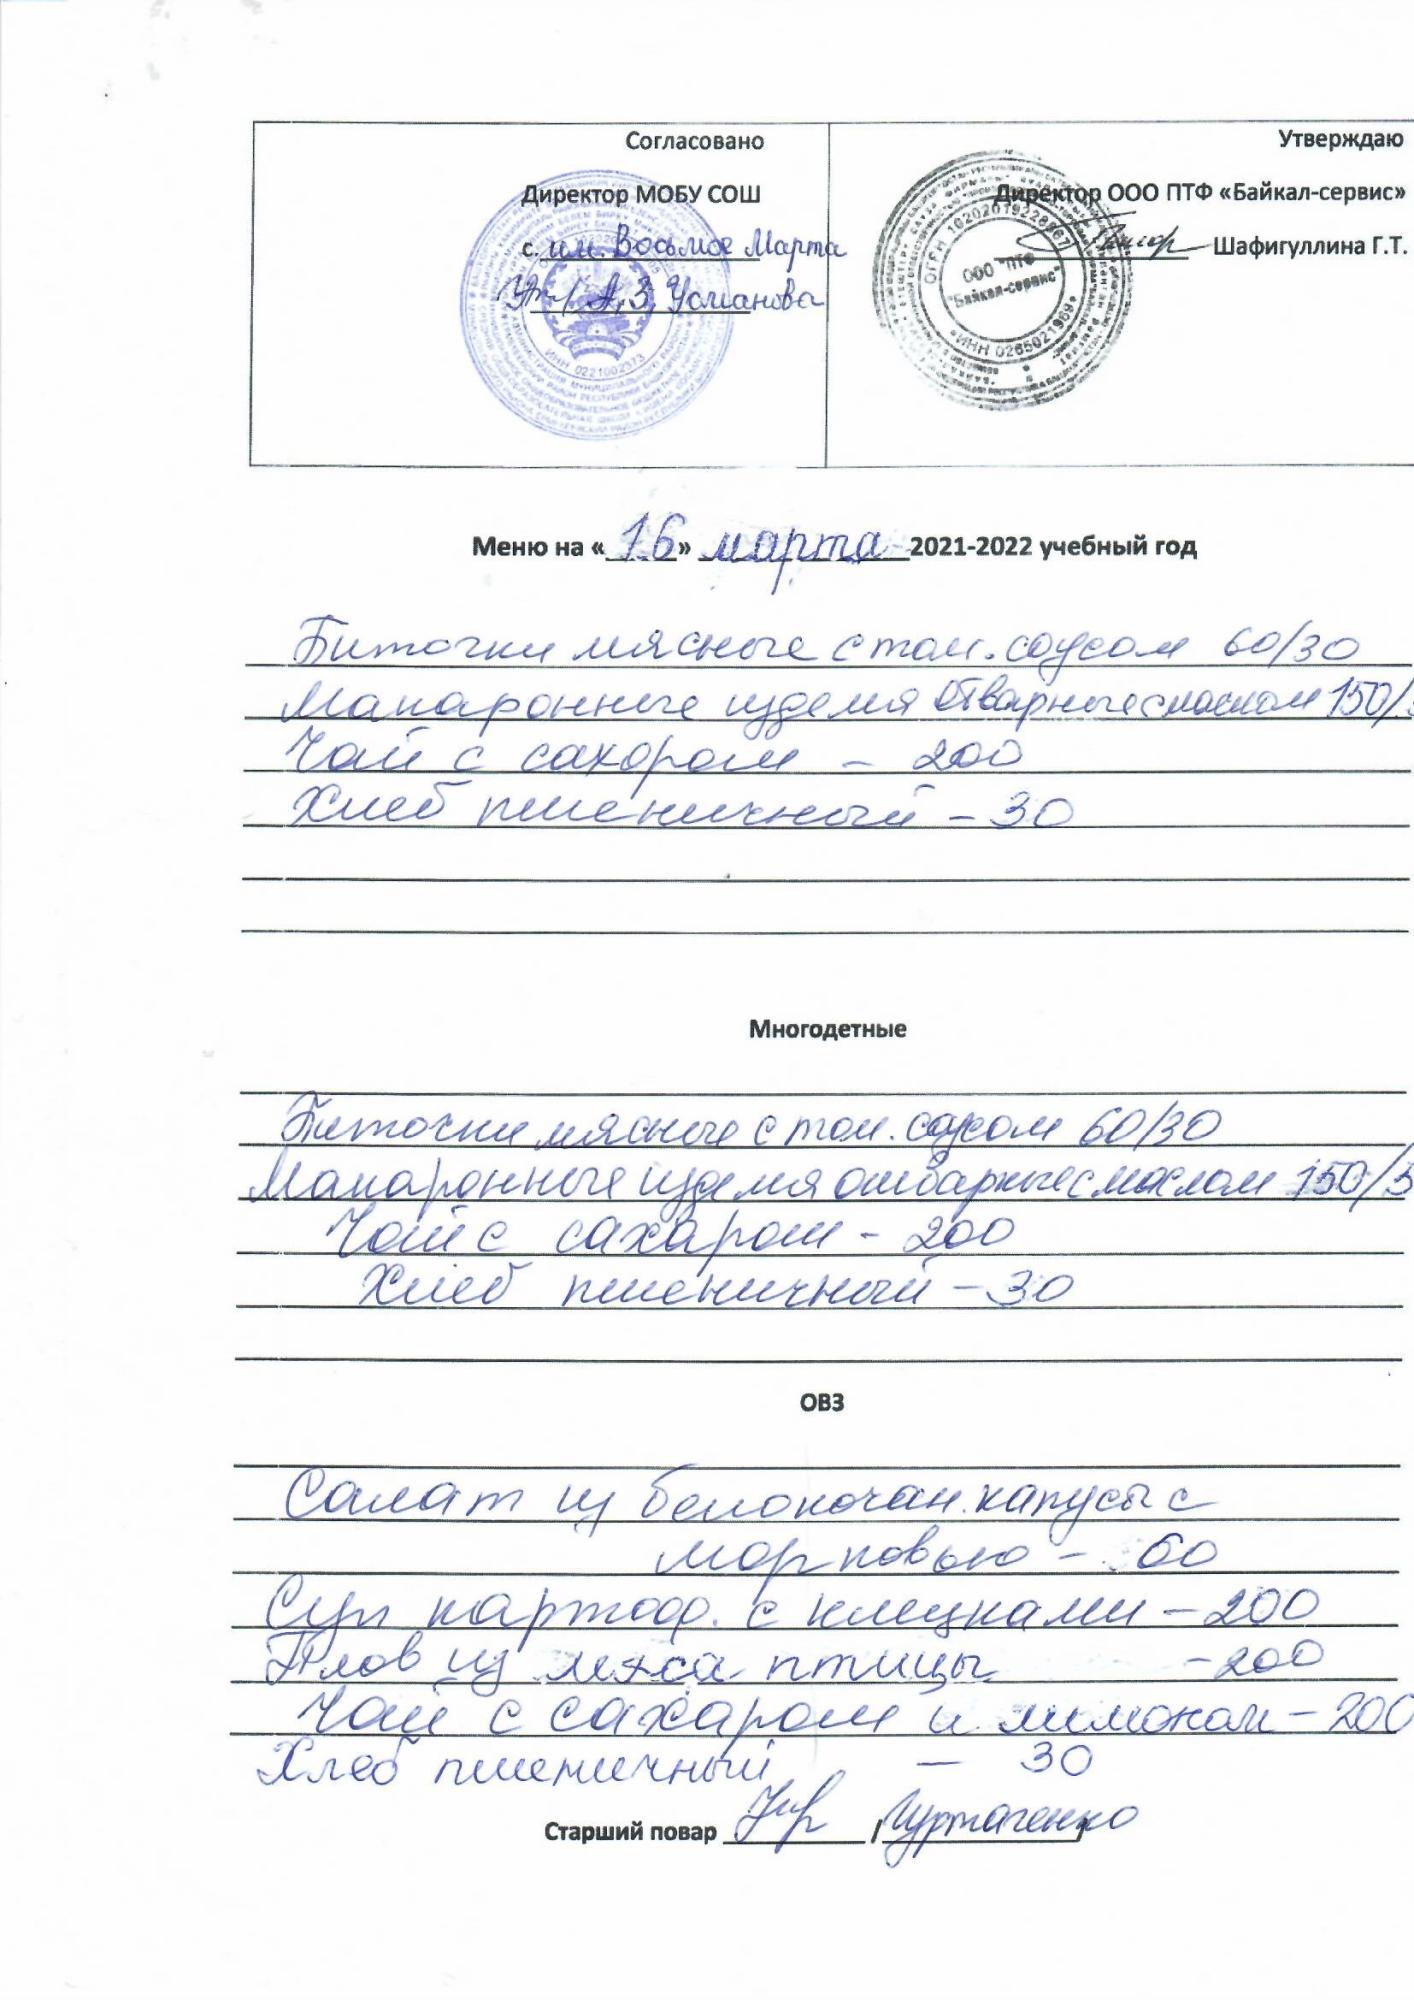 Согласовано
Директор МОБУ СОШ
с. им. Восьмое Марта
А.З. Усманова
Утверждаю
Директор ООО ПТФ «Байкал-сервис»
Шафигуллина Г.Т.
ИНН 0221002373
ОГРН 1020201922886
ООО "ПТФ
"Байкал-сервис"
ИНН 0265021969
Меню на «16» марта 2021-2022 учебный год
Биточки мясные с том. соусом 60/30
Макаронные изделия отварные с маслом 150/
Чай с сахором - 200
Хлеб пшеничный - 30
Многодетные
Биточки мясные с том. соусом 60/30
Макаронные изделия отварные с маслом 150/5
Чай с сахаром - 200
Хлеб пшеничный - 30
ОВЗ
Салат из белокочан. капусы с
морковью - 60
Суп картоф. с клецками - 200
Плов из мяса птицы - 200
Чай с сахаром и лимоном - 200
Хлеб пшеничный - 30
Старший повар / /